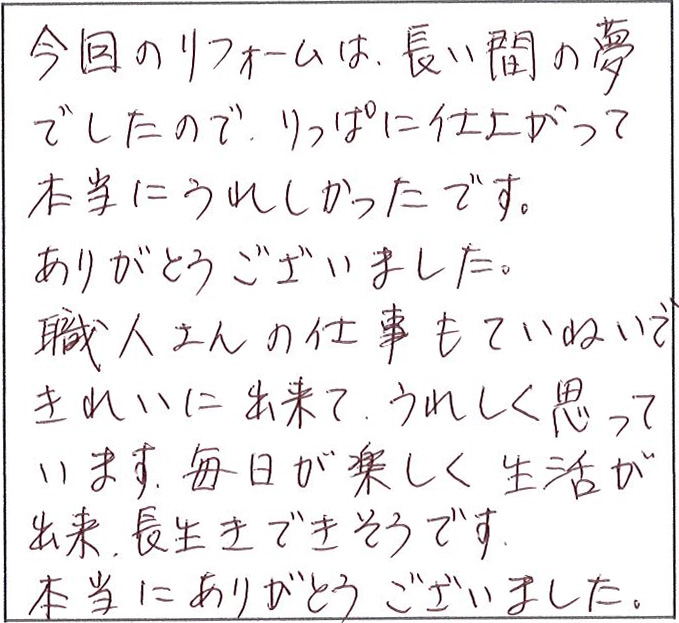 今回のリフォームは、長い間の夢
でしたので、りっぱに仕上がって
本当にうれしかったです。
ありがとうございました。
職人さんの仕事もていねいで
きれいに出来て、うれしく思って
います。毎日が楽しく生活が
出来、長生きできそうです。
本当にありがとうございました。